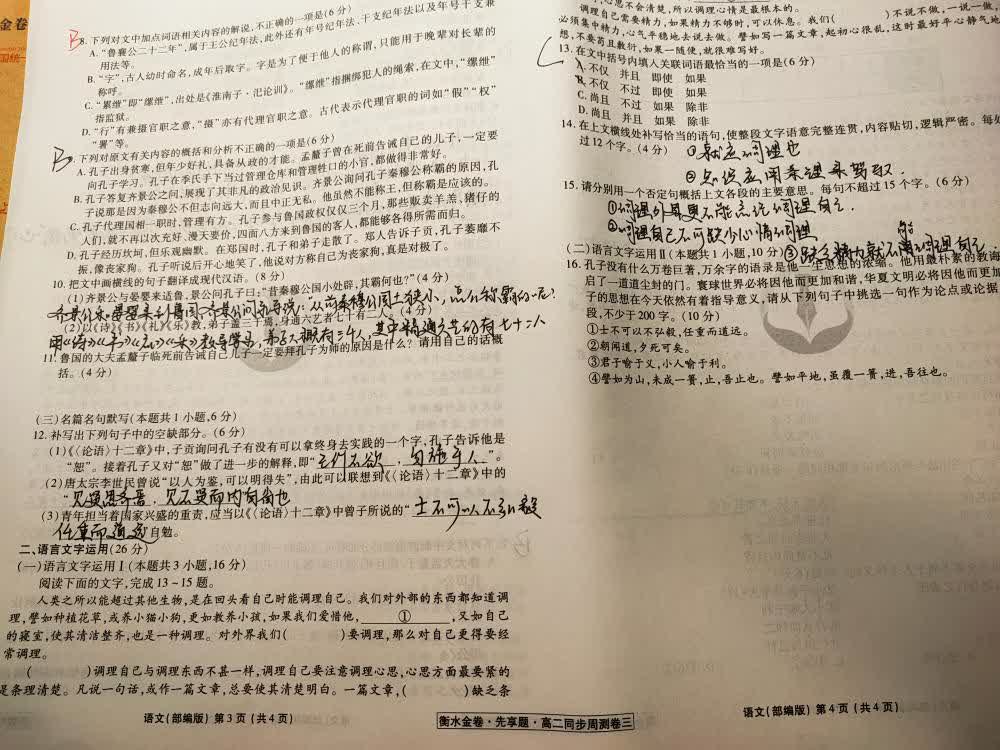 金卷
8. 下列对文中加点词语相关内容的解说,不正确的一项是(6分)
A. “鲁襄公二十二年”,属于王公纪年法,此外还有年号纪年法、干支纪年法以及年号干支兼
用法等。
B. “字”,古人幼时命名,成年后取字。字是为了便于他人的称谓,只能用于晚辈对长辈的
称呼。
C. “累绁”即“缧绁”,出处是《淮南子·氾论训》。“缧绁”指捆绑犯人的绳索,在文中,“缧绁”
指监狱。
D. “行”有兼摄官职之意,“摄”亦有代理官职之意。古代表示代理官职的词如“假”“权”
“署”等。
B
9. 下列对原文有关内容的概括和分析不正确的一项是(6分)
A. 孔子出身贫寒,但年少好礼,具备从政的才能。孟釐子曾在死前告诫自己的儿子,一定要
向孔子学习。孔子在季氏手下当过管理仓库和管理牲口的小官,都做得非常好。
B. 孔子答复齐景公之问,展现了其非凡的政治见识。齐景公询问孔子秦穆公称霸的原因,孔
子说那是因为秦穆公不但志向远大,而且中正无私。他虽然不能称王,但称霸是应该的。
C. 孔子代理国相一职时,管理有方。孔子参与鲁国政权仅仅三个月,那些贩卖羊羔、猪仔的
人们,就不再以次充好、漫天要价,四面八方来到鲁国的客人,都能够各得所需而归。
D. 孔子经历坎坷,但乐观幽默。在郑国时,孔子和弟子走散了。郑人告诉子贡,孔子萎靡不
振,像丧家狗。孔子听说后开心地笑了,他说对方称自己为丧家狗,真是对极了。
10. 把文中画横线的句子翻译成现代汉语。(8分)
(1)齐景公与晏婴来适鲁,景公问孔子曰:“昔秦穆公国小处辟,其霸何也?”(4分)
(2)以《诗》《书》《礼》《乐》教,弟子盖三千焉,身通六艺者七十有二人。(4分)
11. 鲁国的大夫孟釐子临死前告诫自己儿子一定要拜孔子为师的原因是什么?请用自己的话概
括。(4分)
(三)名篇名句默写(本题共1小题,6分)
12. 补写出下列句子中的空缺部分。(6分)
(1)《〈论语〉十二章》中,子贡询问孔子有没有可以拿终身去实践的一个字,孔子告诉他是
“恕”。接着孔子又对“恕”做了进一步的解释,即“
(2)唐太宗李世民曾说“以人为鉴,可以明得失”,由此可以联想到《〈论语〉十二章》中的
“见贤思齐焉,见不贤而内自省也
(3)青年担当着国家兴盛的重责,应当以《〈论语〉十二章》中曾子所说的“士不可以不弘毅
任重而道远”自勉。
二、语言文字运用(26分)
(一)语言文字运用Ⅰ(本题共3小题,16分)
阅读下面的文字,完成13~15题。
人类之所以能超过其他生物,是在回头看自己时能调理自己。我们对外部的东西都知道调
理,譬如种植花草,或养小猫小狗,更如教养小孩,如果我们爱惜他, ① ,又如自己
的寝室,使其清洁整齐,也是一种调理。对外界我们( )要调理,那么对自己更得要经
常调理。
( )调理自己与调理东西不甚一样,调理自己要注意调理心思,心思方面最要紧的
是条理清楚。凡说一句话,或作一篇文章,总要使其清楚明白。一篇文章,( )缺乏条
语文(部编版) 第3页(共4页)
衡水金卷·先享题·高二同步周测卷三
心思不会清楚,所以调理心情是最根本的。
调理自己需要精力,如果精力不够时,可以休息。我们( )不说不做,一说一做,
必须集中精力,心气平稳地去说去做。譬如写一篇文章,起初心很乱,这时最好平心静气地
想,不要苟且敷衍,如果一随便,就很难写好。
C
13. 在文中括号内填入关联词语最恰当的一项是(6分)
A. 不仅 并且 即使 如果
B. 不仅 不过 即使 如果
C. 尚且 不过 如果 除非
D. 尚且 并且 如果 除非
14. 在上文横线处补写恰当的语句,使整段文字语意完整连贯,内容贴切,逻辑严密。每处
过12个字。(4分)
15. 请分别用一个否定句概括上文各段的主要意思。每句不超过15个字。(6分)
(二)语言文字运用Ⅱ(本题共1小题,10分)
16. 孔子没有什么万卷巨著,万余字的语录是他一生思想的浓缩。他用最朴素的教诲
启了一道道尘封的门。寰球世界必将因他而更加和谐,华夏文明必将因他而更加
子的思想在今天依然有着指导意义,请从下列句子中挑选一句作为论点或论据
段,不少于200字。(10分)
①士不可以不弘毅,任重而道远。
②朝闻道,夕死可矣。
③君子喻于义,小人喻于利。
④譬如为山,未成一篑,止,吾止也。譬如平地,虽覆一篑,进,吾往也。
语文(部编版) 第4页(共4页)